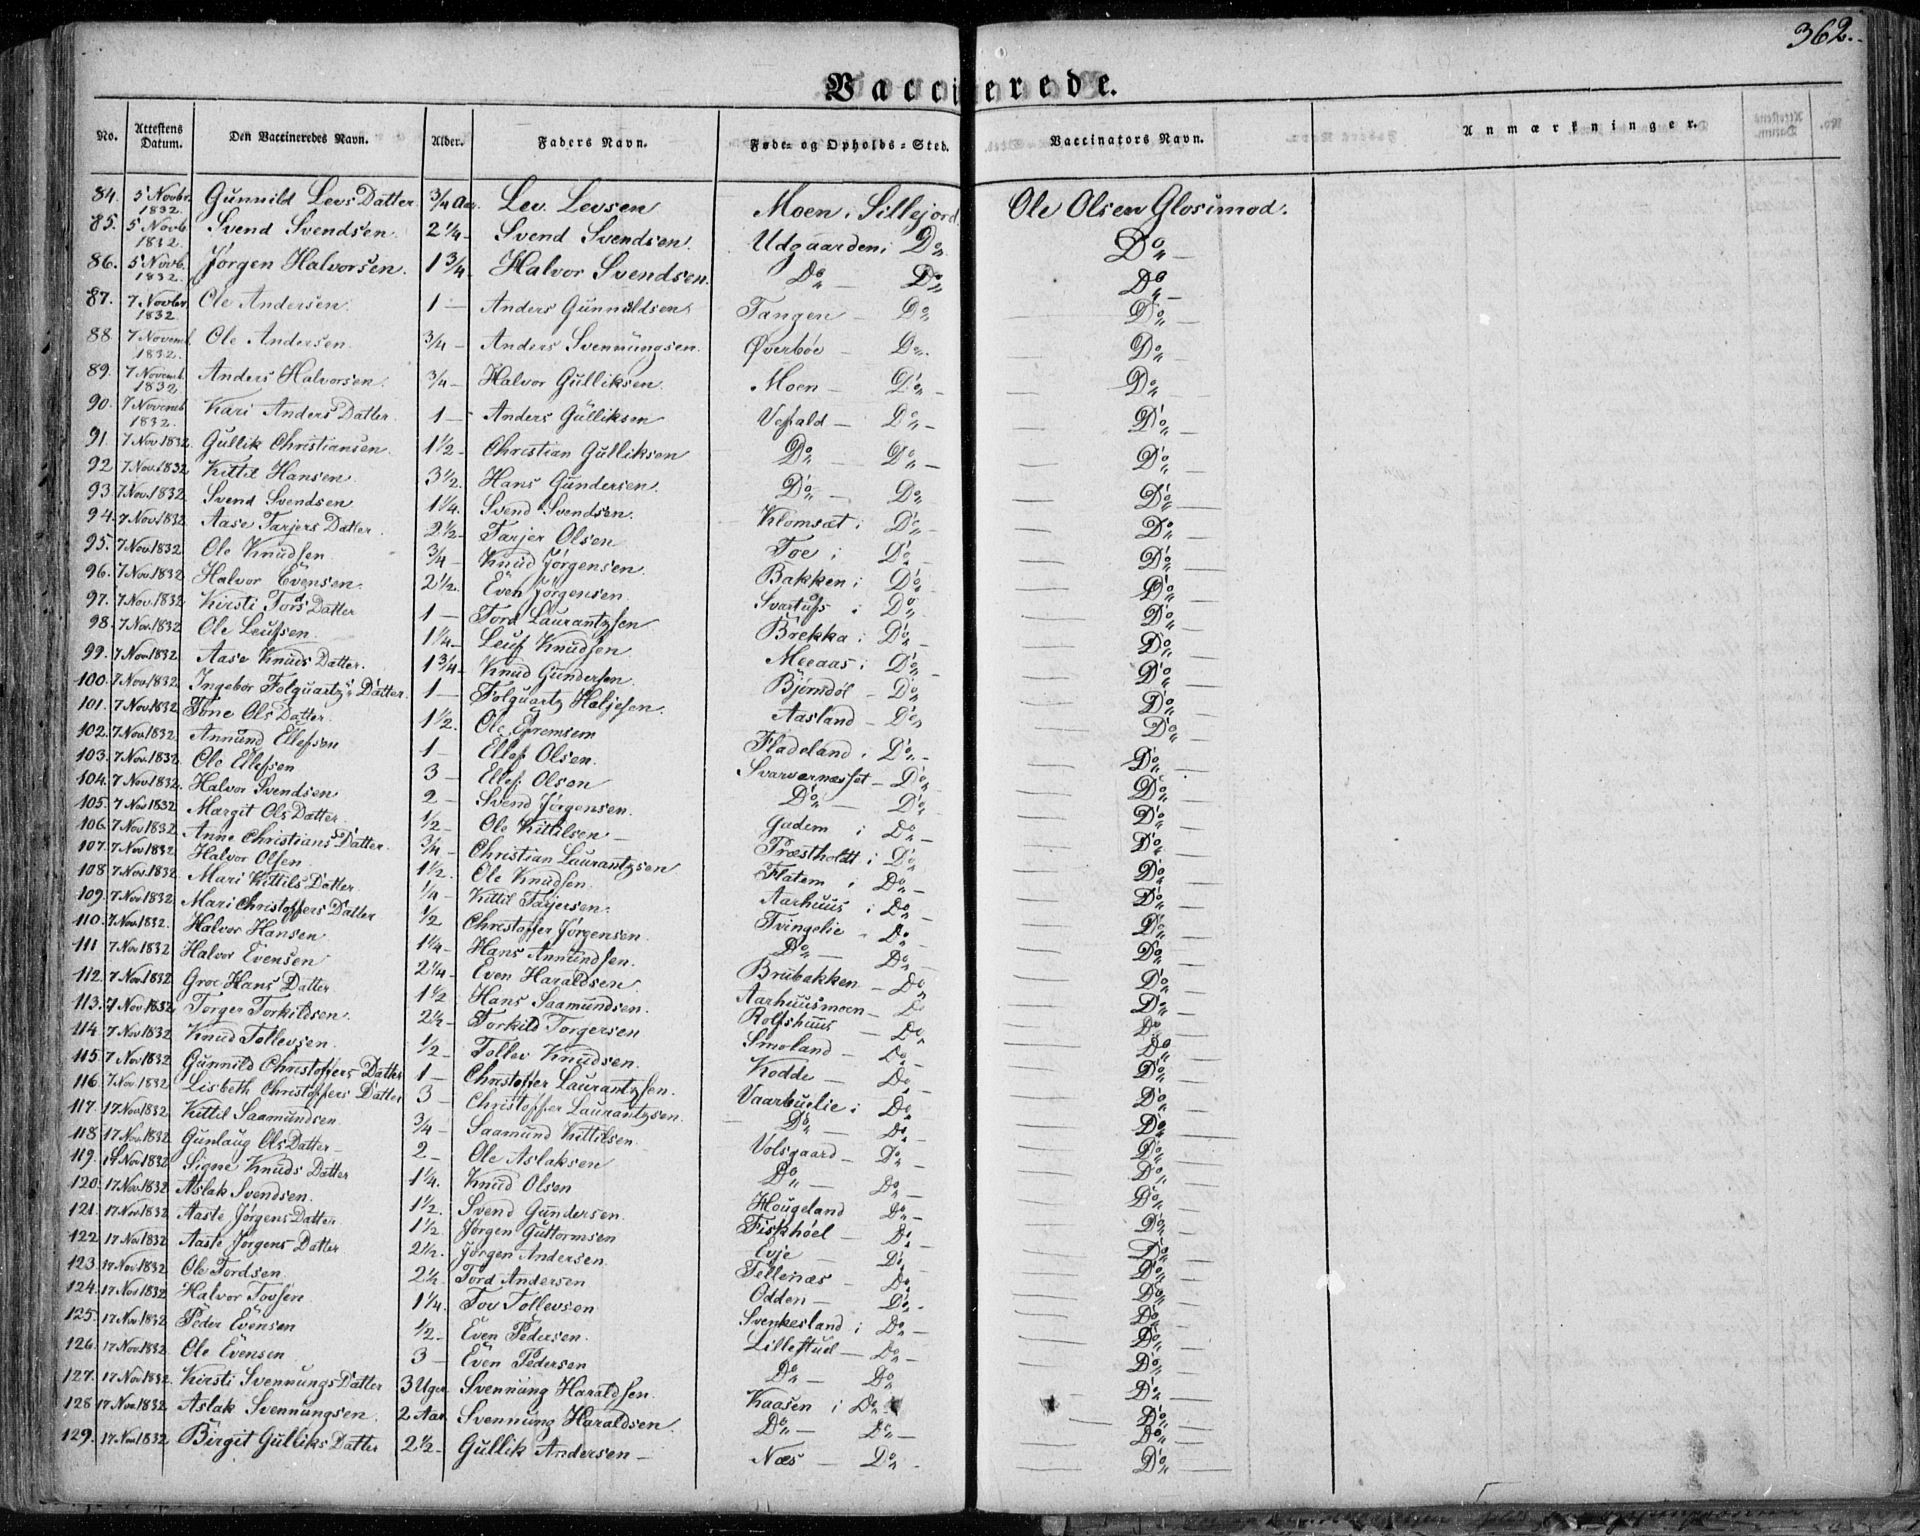 362.
Vaccinerede.
No. Attestens Datum. Den Vaccineredes Navn. Alder. Faders Navn. Føde- og Opholds-Sted. Vaccinators Navn. Anmærkninger.
84. 5 Novbr 1832. Gunnild Levs Datter 3/4 Aar. Lev Levsen Moen i Sillejord Ole Olsen Glosimod.
85. 5 Novb. 1832. Svend Svendsen 2 1/4 - Svend Svendsen. Udgaarden i Do Do -
86. 5 Novb. 1832. Jørgen Halvorsen. 1 3/4 - Halvor Svendsen. Do - Do Do -
87. 7 Novbr 1832. Ole Andersen 1 - Anders Gunnildsen Tangen - Do - Do -
88 7 Novemb. 1832. Ole Andersen. 3/4 - Anders Svennungsen. Øverbøe - Do. - Do -
89. 7 Novemb. 1832. Anders Halvorsen. 3/4 - Halvor Gulliksen. Moen - Do - - Do -
90. 7 Novemb 1832. Kari Anders Datter. 1 - Anders Gulliksen Do - - Do -
91. 7 Nov 1832. Gullik Christiansen. 1 1/2 - Christian Gulliksen Do Do - - Do -
92 7 Nov. 1832 Kittil Hansen 3 1/2. Hans Gundersen. Do - Do - Do -
93 7 Nov. 1832 Svend Svendsen 1 1/4. Svend Svendsen. Klomsæt i Do - - Do -
94. 7 Nov. 1832 Aase Tarjers Datter. 2 1/2 - Tarjer Olsen Toe i Do - - Do -
95. 7 Nov. 1832 Ole Knudsen 3/4 - Knud Jørgensen. Bakken i Do - Do -
96. 7 Nov. 1832 Halvor Evensen. 2 1/2. Even Jørgensen. i Do - Do -
97. 7 Nov. 1832 Kirsti Tords Datter 1 - Tord Laurantzsen Brekka i Do - - Do -
98. 7 Nov. 1832 Ole Leufsen. 1 1/4 - Leuf Knudsen Meeaas i Do - - Do -
99. 7 Nov. 1832 Aase Knuds Datter. 1 3/4 - Knud Gundersen. Bjørndøl - Do - Do -
100. 7 Nov. 1832 Ingebor Folquartz's Datter. 1 - Folquartz Aasland - Do - Do -
101. 7 Nov. 1832 Tone Ols Datter. 1 1/2. Ole Fladeland i Do - - Do -
102. 7 Nov. 1832 Annund Ellefsen 1 - Ellef Olsen. - Do - - Do -
103. 7 Nov. 1832. Ole Ellefsen 3 - Ellef Olsen Do - Do - Do -
104. 7 Nov. 1832 Halvor Svendsen 2 - Svend Jørgensen. Gadem i Do - - Do -
105. 7 Nov 1832 Margit Ols Datter. 1/2 - Ole Kittilsen - Præstholdt i Do - Do -
106. 7 Nov 1832 Anne Christians Datter. 3/4 - Christian Laurantzsen Flatem i Do - - Do -
107. 7 Nov 1832 Halvor Olsen. 1 1/2. Ole Knudsen. Aarhuus i Do - - Do -
108 7 Nov. 1832 Mari Kittils Datter 1/4 - Kittil Tarjersen. Tvingelie - Do - - Do -
109. 7 Nov 1832 Mari Christoffers Datter 1/2 Christoffer Jørgensen. Do - Do - - Do -
110. 7 Nov. 1832. Halvor Hansen 1 1/4 - Hans Annundsen. Brubakken - Do - Do -
111 7 Nov 1832 Halvor Evensen 2 1/4 - Even Haraldsen. Aarhuusmoen - Do - Do -
112. 7 Nov. 1832 Groe Hans Datter. 1 1/2 Hans Saamundsen. Rolfshuus - Do - Do -
113. 7 Nov. 1832 Torger Torkildsen. 2 1/2 - Torkild Torgersen Smoland - Do - - Do -
114 7 Nov 1832 Knud Tollevsen. 1/2 - Tollev Knudsen. Kodde - Do - - Do -
115. 7 Nov 1832 Gunnild Christoffers Datter 1 - Christoffer Laurantzsen. Vaarbuelie i Do - Do -
116. 7 Nov 1832 Lisbeth Christoffers Datter 3 - Christoffer Laurantzsen. Do - Do - - Do -
117. 17 Nov. 1832 Kittil Saamundsen 3/4 - Saamund Kittilsen. Volsgaard - Do - - Do -
118 17 Nov. 1832 Gunlaug Ols Datter - 2 - Ole Aslaksen Do Do - - Do -
119. 17 Nov 1832 Signe Knuds Datter 1 1/4. Knud Olsen Hougeland Do - - Do -
120. 17 Nov. 1832 Aslak Svendsen. 1 1/2. Svend Gundersen. Fiskhøel - Do - - Do -
121. 17 Nov 1832 Aaste Jørgens Datter 1 1/2 Jørgen Guttormsen Evje - Do - Do -
122 17 Nov 1832 Aaste Jørgens Datter 2 1/2. Jørgen Andersen Tellenæs - Do - Do -
123. 17 Nov 1832 Ole Tordsen. 2 1/2 Tord Andersen Odden - Do - - Do -
124. 17 Nov 1832 Halvor Tovsen. 1 1/4. Tov Tollevsen Svenkesland i Do - - Do -
125. 17 Nov 1832 Peder Evensen 1/2 - Even Pedersen. Do - - Do -
126. 17 Nov 1832. Ole Evensen. 3 - Even Pedersen Do - Do - Do -
127. 17 Nov 1832. Kirsti Svennungs Datter 3 Uger Svennung Haraldsen. Kaasen i Do - Do -
128 17 Nov. 1832. Aslak Svennungsen. 2 Aar. Svennung Haraldsen. Do - Do - - Do -
129. 17 Nov. 1832. Birgit Gulliks Datter 2 1/2 - Gullik Andersen - Næs - Do - - Do -